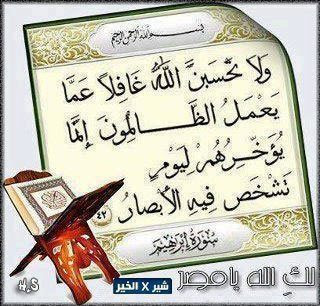 بسم الله الرحمن الرحيم
وَلَا تَحْسَبَنَّ اللَّهَ غَافِلًا عَمَّا
يَعْمَلُ الظَّالِمُونَ إِنَّمَا
يُؤَخِّرُهُمْ لِيَوْمٍ
تَشْخَصُ فِيهِ الْأَبْصَارُ ٤٢
سُورَةُ إِبْرَاهِيم
لك الله يا مصر
شير X الخير
H.S